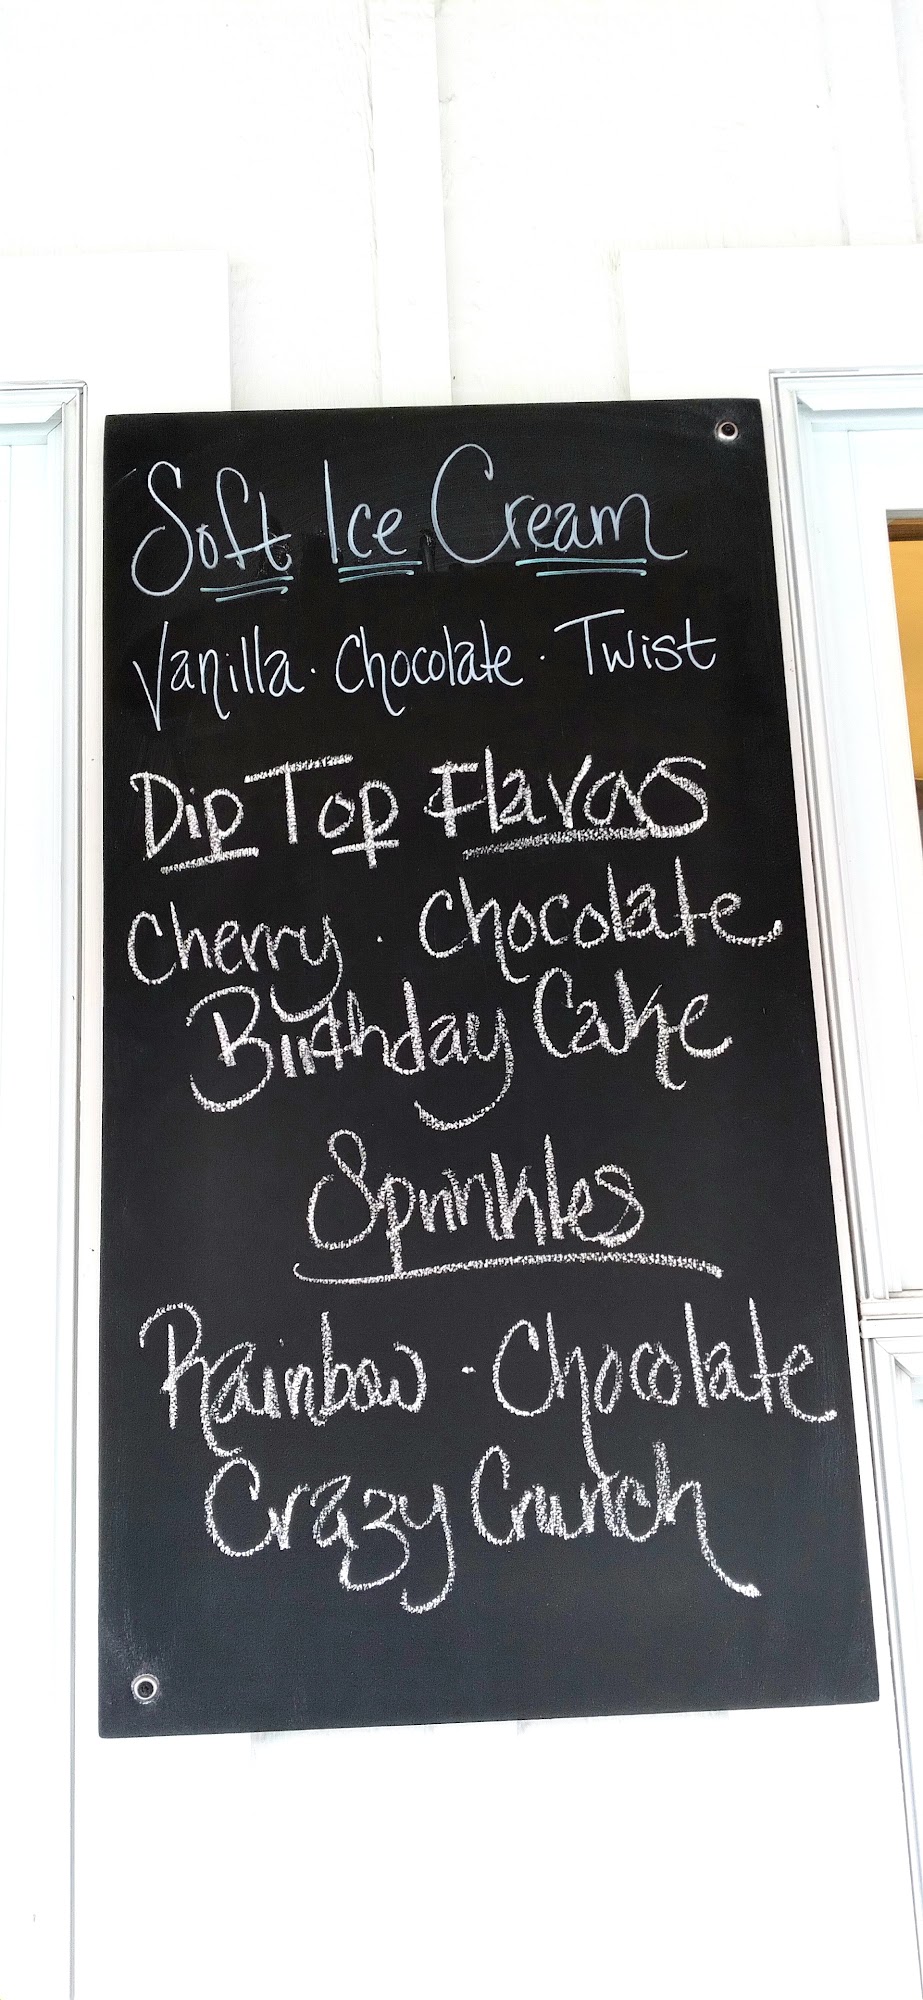 Soft Ice Cream
Vanilla · Chocolate · Twist
Dip Top Flavors
Cherry · Chocolate
Birthday Cake
Sprinkles
Rainbow · Chocolate
Crazy Crunch